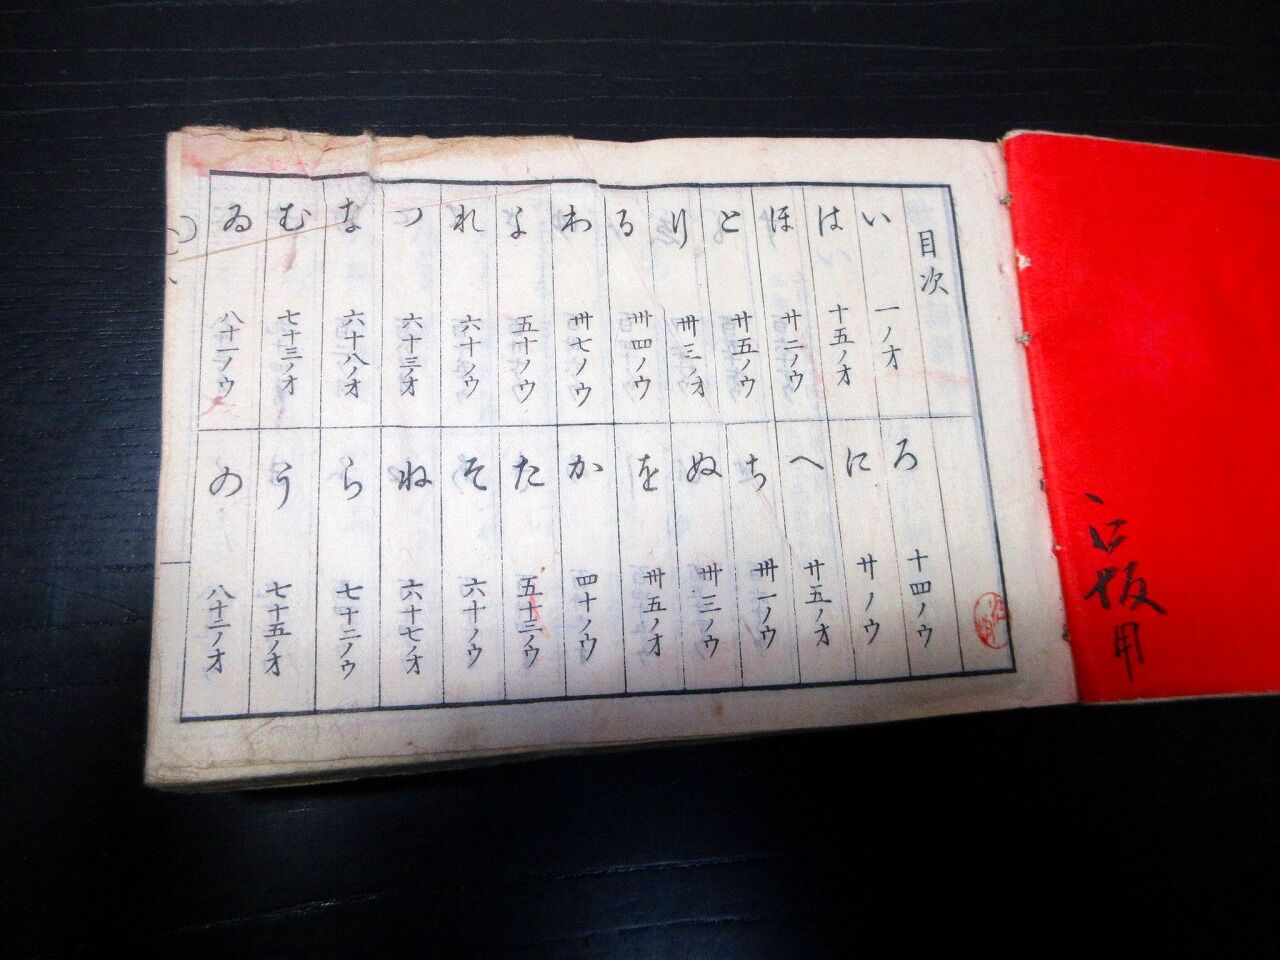 目次
い 一ノオ
ろ 十四ノウ
は 十五ノオ
に 廿ノウ
ほ 廿二ノウ
へ 廿五ノオ
と 廿五ノウ
ち 卅一ノウ
り 卅三ノオ
ぬ 卅三ノウ
る 卅四ノウ
を 卅五ノオ
わ 卅七ノウ
か 四十ノウ
よ 五十ノウ
た 五十三ノウ
れ 六十ノウ
そ 六十ノウ
つ 六十三ノオ
ね 六十七ノオ
な 六十八ノオ
ら 七十二ノウ
む 七十三ノオ
う 七十五ノオ
ゐ 八十一ノウ
の 八十二ノオ